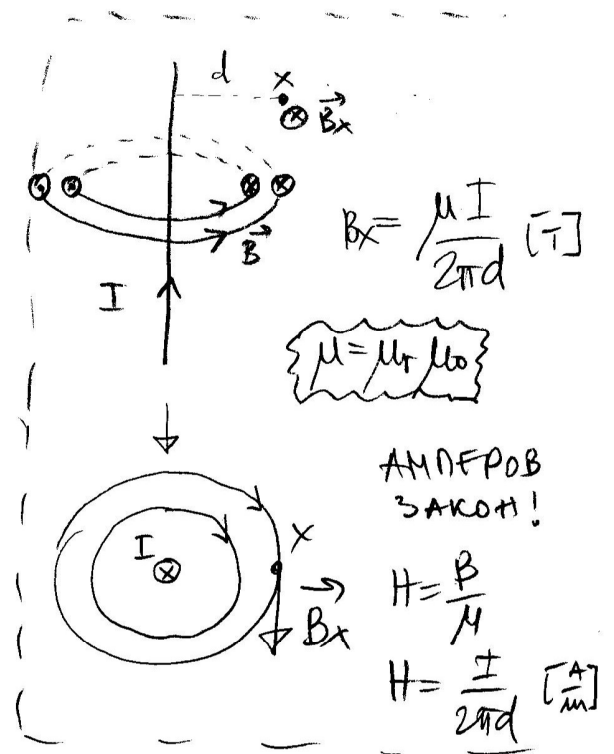 d x
⊗ B⃗x
B⃗
I
Bx = μI / 2πd [T]
μ = μr μ0
АМПЕРОВ
ЗАКОН!
I ⊗ x
B⃗x
H = B / μ
H = I / 2πd [A/m]